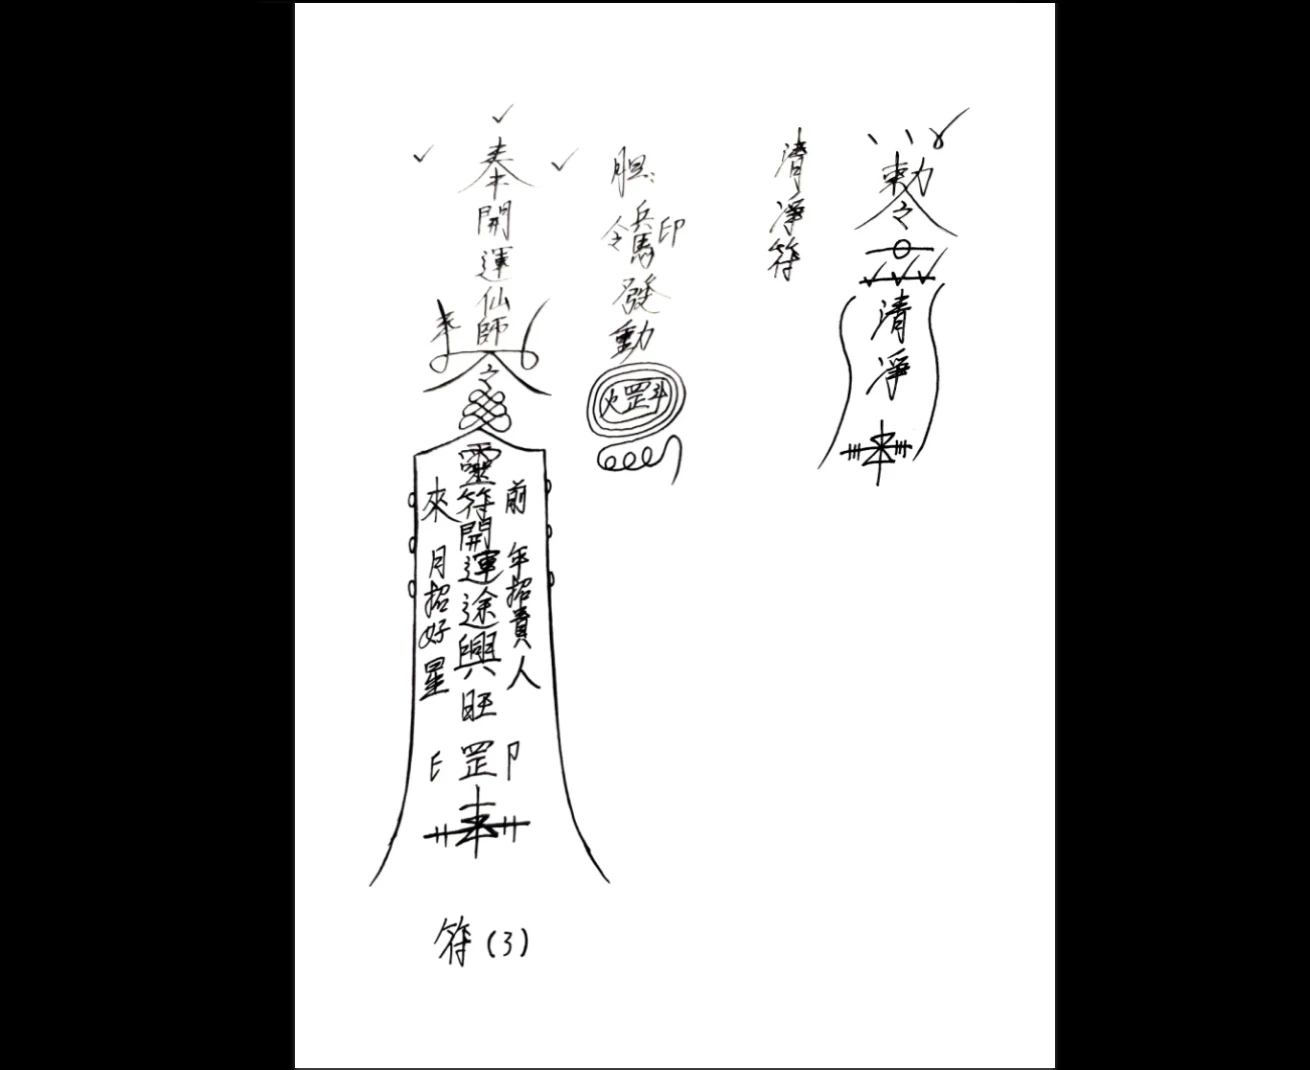 奉開運仙師
奉
令
前年招貴人
靈符開運途興旺
來月招好星
罡
印
胆
令兵馬印
發動
火罡斗
清淨符
勅令
清淨
符(3)